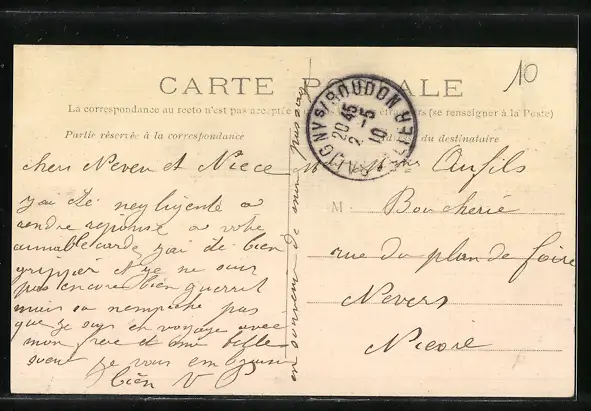 10
CARTE POSTALE
La correspondance au recto n'est pas acceptée (se renseigner à la Poste)
Partie réservée à la correspondance
du destinataire
S/BOUDON NIÈVRE
20 45
2 - 5
10
cher Neveu et Niece
j'ai été negligente a
rendre reponse a votre
aimable carde j'ai été bien
grippér
pas encore bien guerrit
mais sa nempeche pas
que je suis en voyage avec
mon frere et ma belle
soeur je vous embrasse
bien V
en souvenir de mon passage
M
Boucherie
rue du plan de foire
Nevers
Nievre